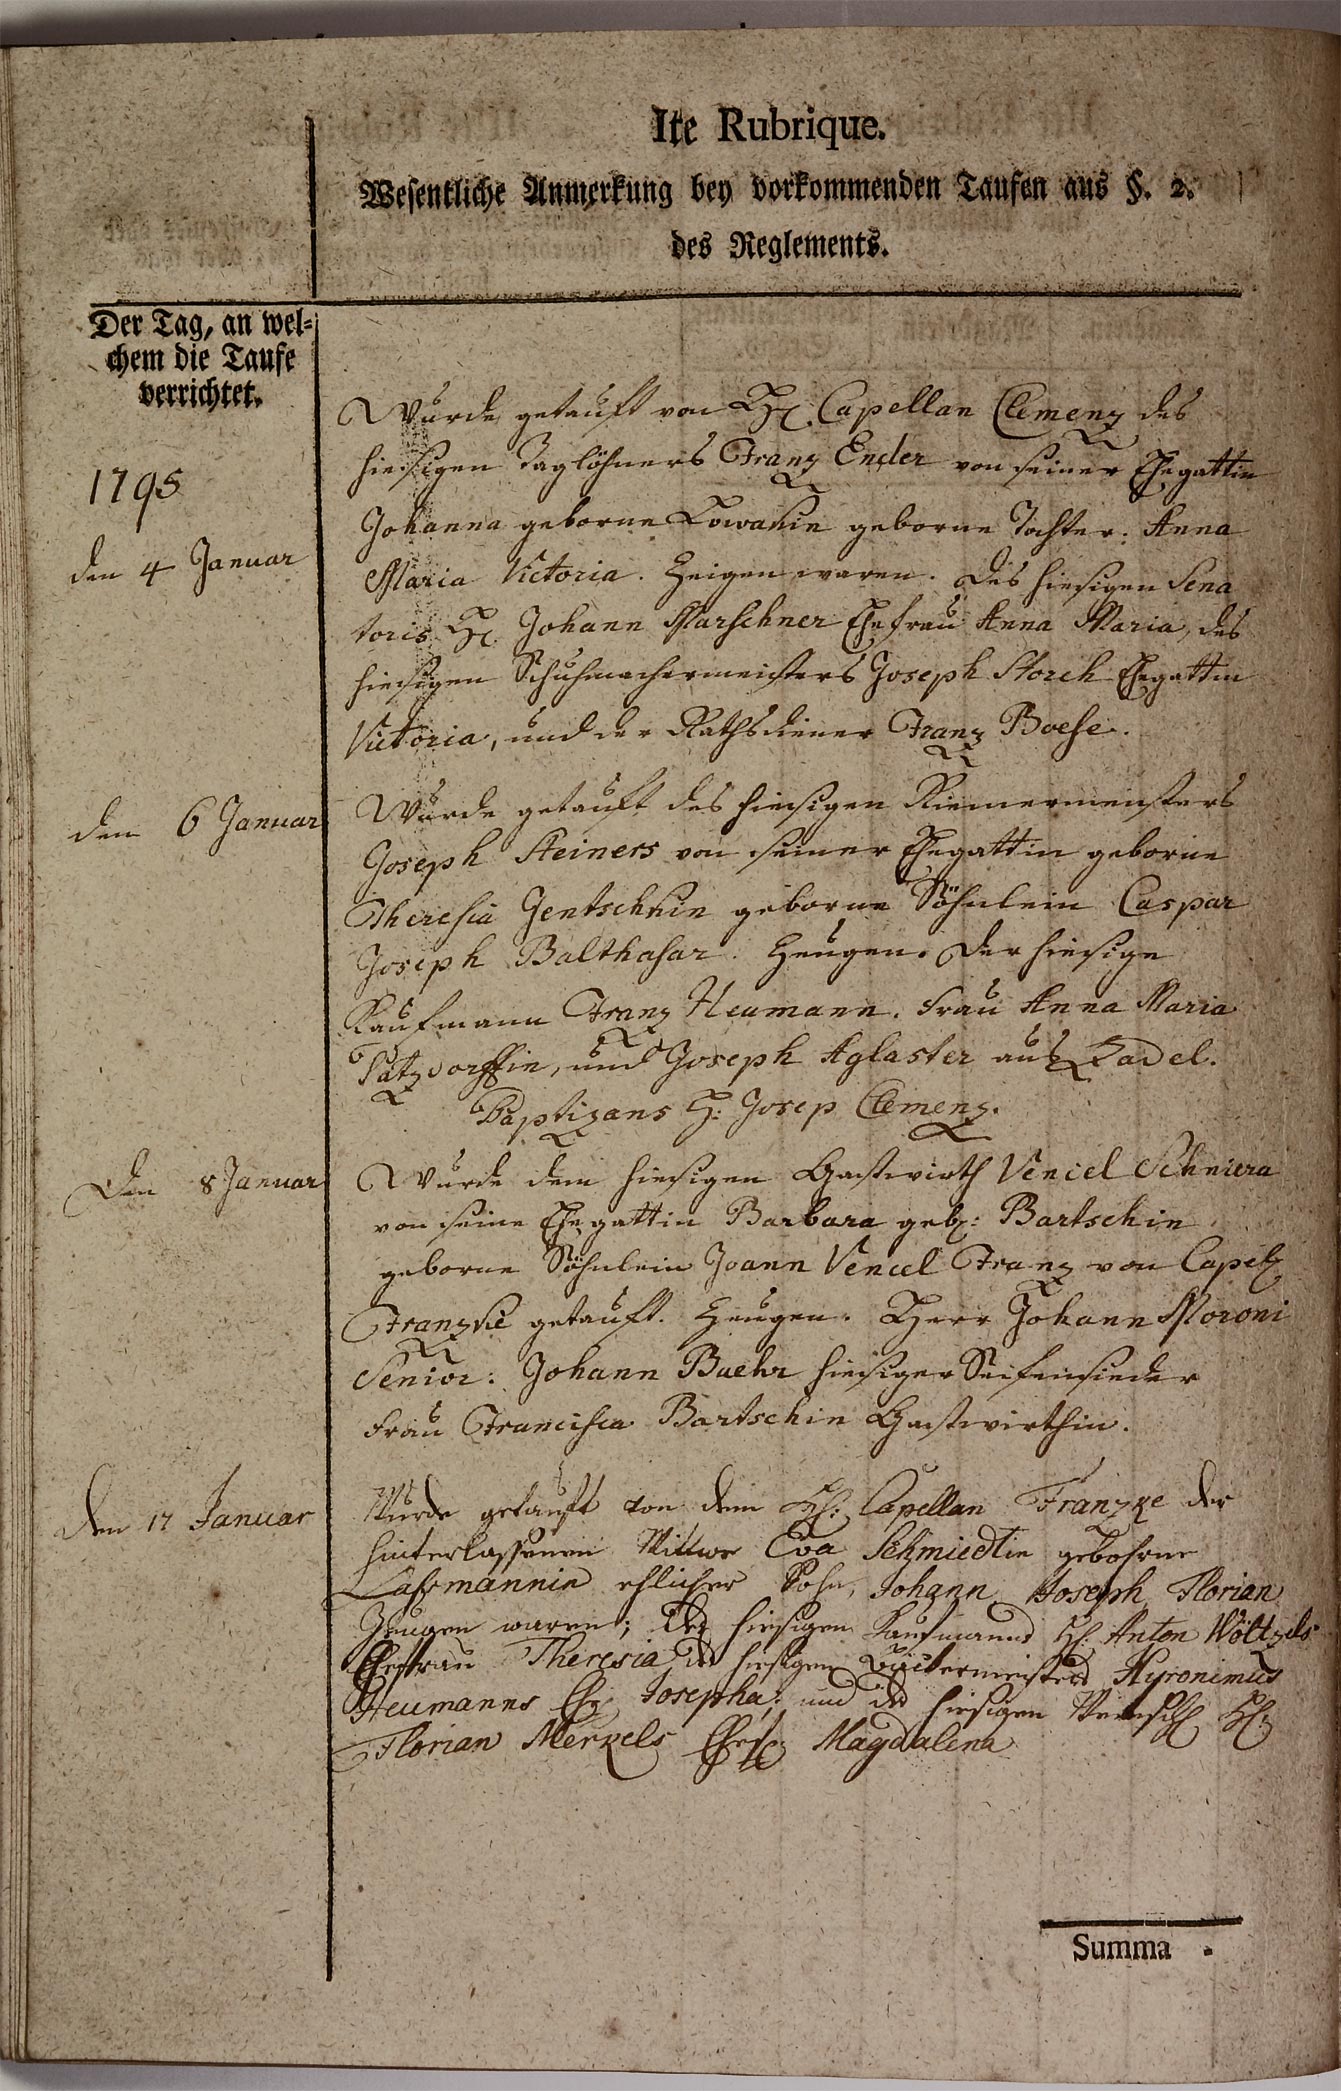 Ite Rubrique.
Wesentliche Anmerkung bey vorkommenden Taufen aus §. 2.
des Reglements.
Der Tag, an wel-
chem die Taufe
verrichtet.
1795
den 4 Januar
Wurde getauft von H. Capellan Clemenz des
hiesigen Taglöhners Franz Ender von seiner Ehegattin
Johanna geborne geborne Tochter: Anna
Maria Victoria. Zeigen waren. Des hiesigen Sena
toris H. Johann Marschner Ehefrau Anna Maria, des
hiesigen Schuhmachermeisters Joseph Storch Ehegattin
Victoria, und der Rathsdiener Franz Boese.
den 6 Januar
Wurde getauft des hiesigen Riemermeisters
Joseph Steiners von seiner Ehegattin geborne
Theresia Jentschkin geborne Söhnlein Caspar
Joseph Balthasar. Zeugen. Der hiesige
Kaufmann Franz Heumann. Frau Anna Maria
Patzdorffin, und Joseph Aglaster aus Zadel.
Baptizans H: Josep Clemenz.
Den 8 Januar
Wurde dem hiesigen Gastwirth Vencel Schniera
von seine Ehegattin Barbara geb: Bartschin
geborne Söhnlein Joann Vencel Franz von Capel
Franzke getauft. Zeugen. Herr Johann Moroni
Senior: Johann Baehr hiesiger Seifensieder
Frau Francisca Bartschin Gastwirthin.
Den 17 Januar
Wurde getauft von dem H: Capellan Franzke der
hinterlassenen Wittwe Eva Schmiedtin gebohrne
Lahrmannin ehlicher Sohn, Johann Joseph Florian
Zeugen waren; des hiesigen Kaufmanns H: Anton Wöltzels
Ehefrau Theresia des hiesigen Büttnermeisters Hyronimus
Heumanns Eh: Josepha: und des hiesigen H:
Florian Merkels Ehef: Magdalena
Summa